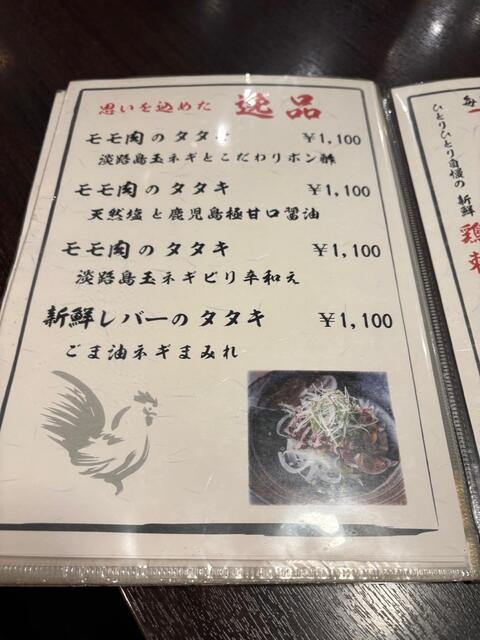 思いを込めた 逸品
モモ肉のタタキ ￥1,100
淡路島玉ネギとこだわりポン酢
モモ肉のタタキ ￥1,100
天然塩と鹿児島極甘口醤油
モモ肉のタタキ ￥1,100
淡路島玉ネギピリ辛和え
新鮮レバーのタタキ ￥1,100
ごま油ネギまみれ
毎
ひとりひとり自慢の 新鮮
鶏